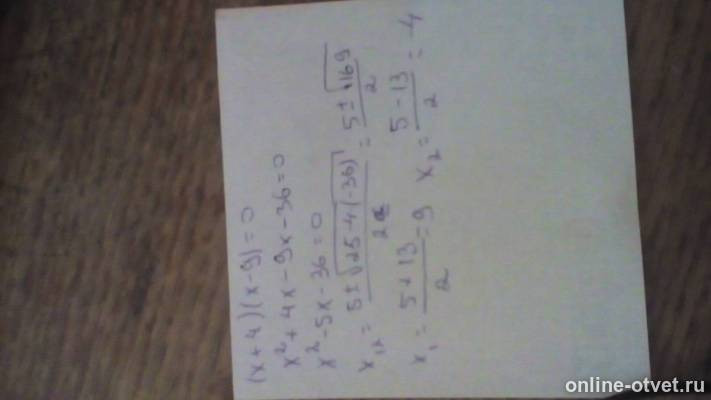 (x+4)(x-9)=0
x²+4x-9x-36=0
x²-5x-36=0
x₁,₂ = (5±√(25-4(-36)))/2 = (5±√169)/2
x₁ = (5+13)/2 = 9 x₂ = (5-13)/2 = -4
online-otvet.ru